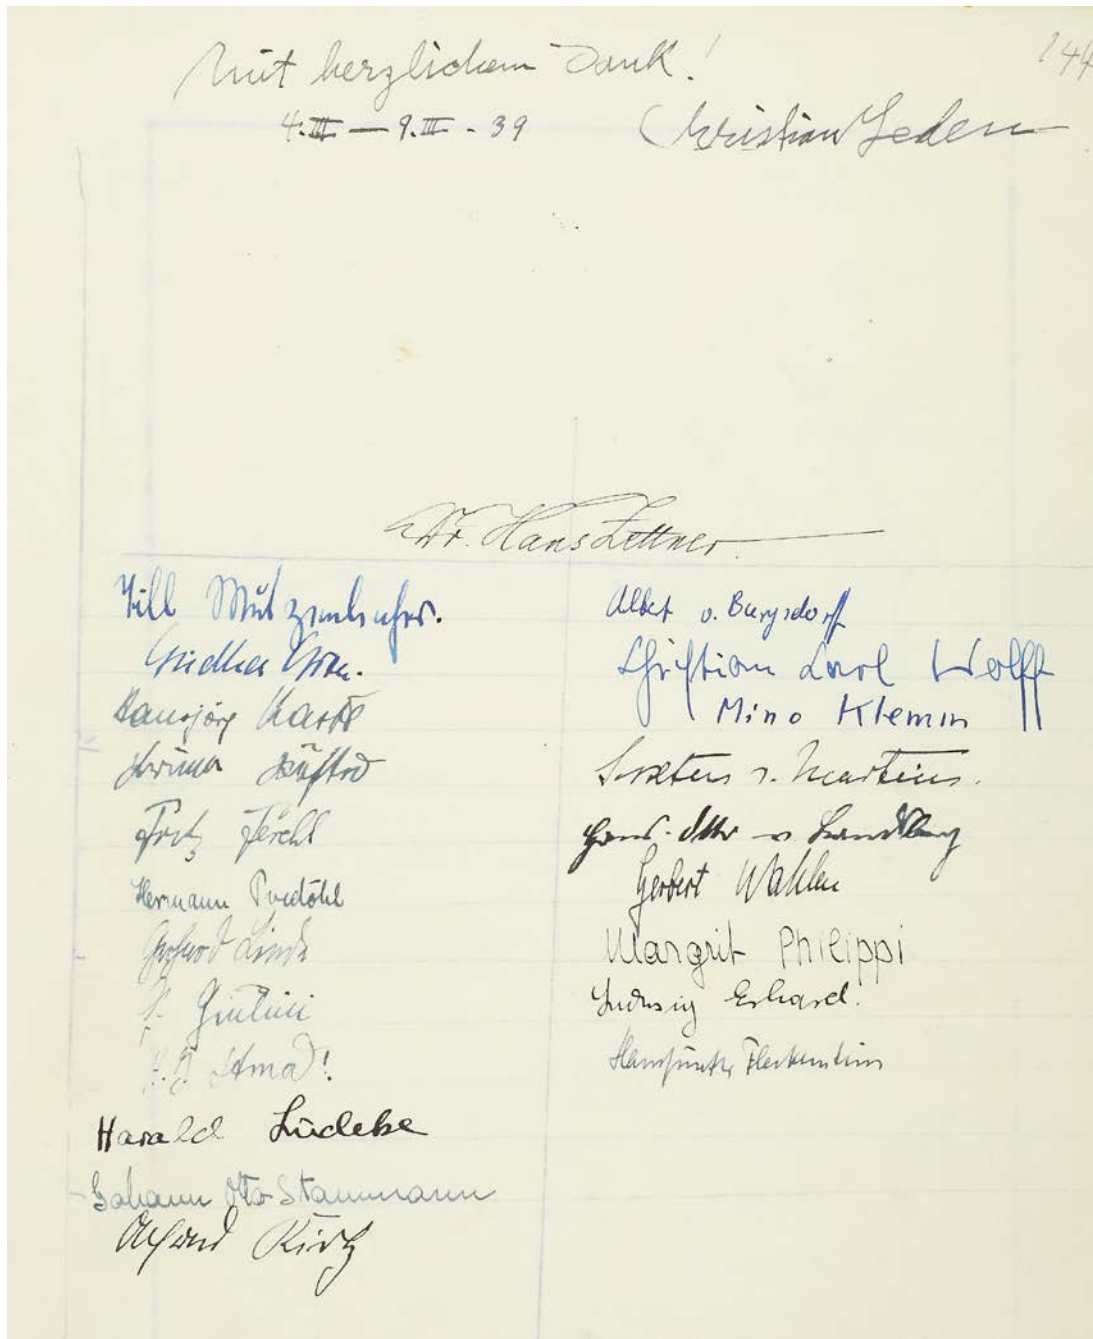 Mit herzlichem Dank!
144
4.III — 9.III - 39
Christian Leden
Dr. Hans Zettner
Till Mutzenbecher.
Hansjörg
Fritz Jercht
Hermann Predöhl
Gerhard Linde
Giulini
Harald Lüdeke
Johann Otto Stammann
Alfred Kirtz
Albert v. Burgsdorf
Christian Carl Wolff
Mino Klemm
v. Martius.
Hans-Otto v.
Herbert Wahlen
Margrit Philippi
Ludwig Erhard.
Hansgünther Fleckenstein